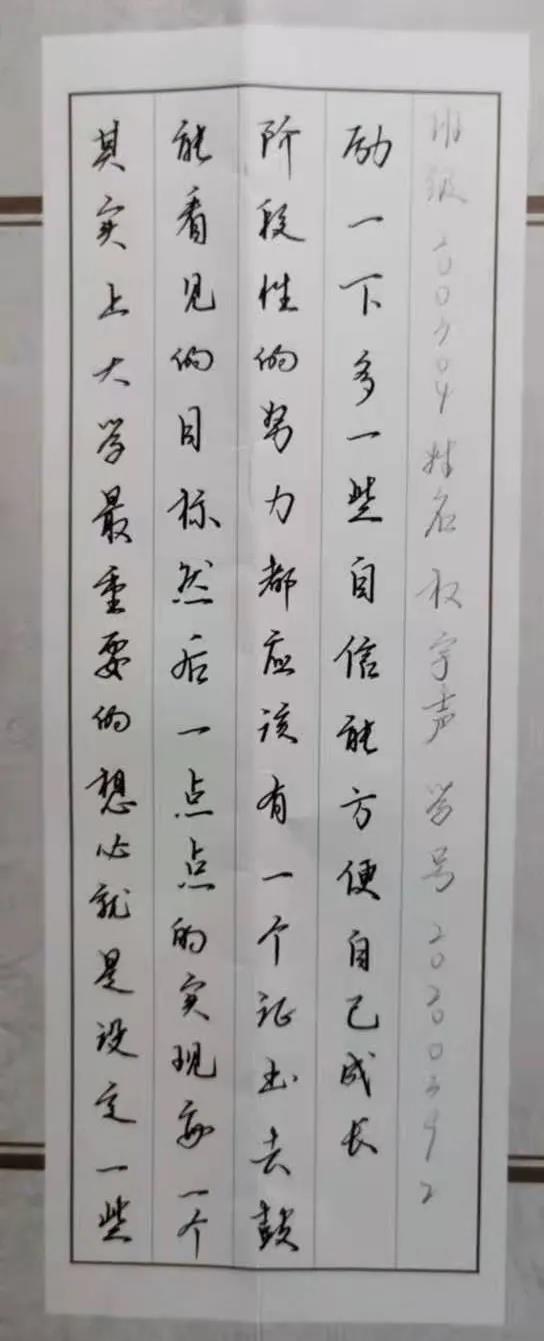 其实上大学最重要的想必就是设定一些
能看见的目标然后一点点的实现每一个
阶段性的努力都应该有一个证书去鼓
励一下多一些自信能方便自己成长
班级 姓名 学号